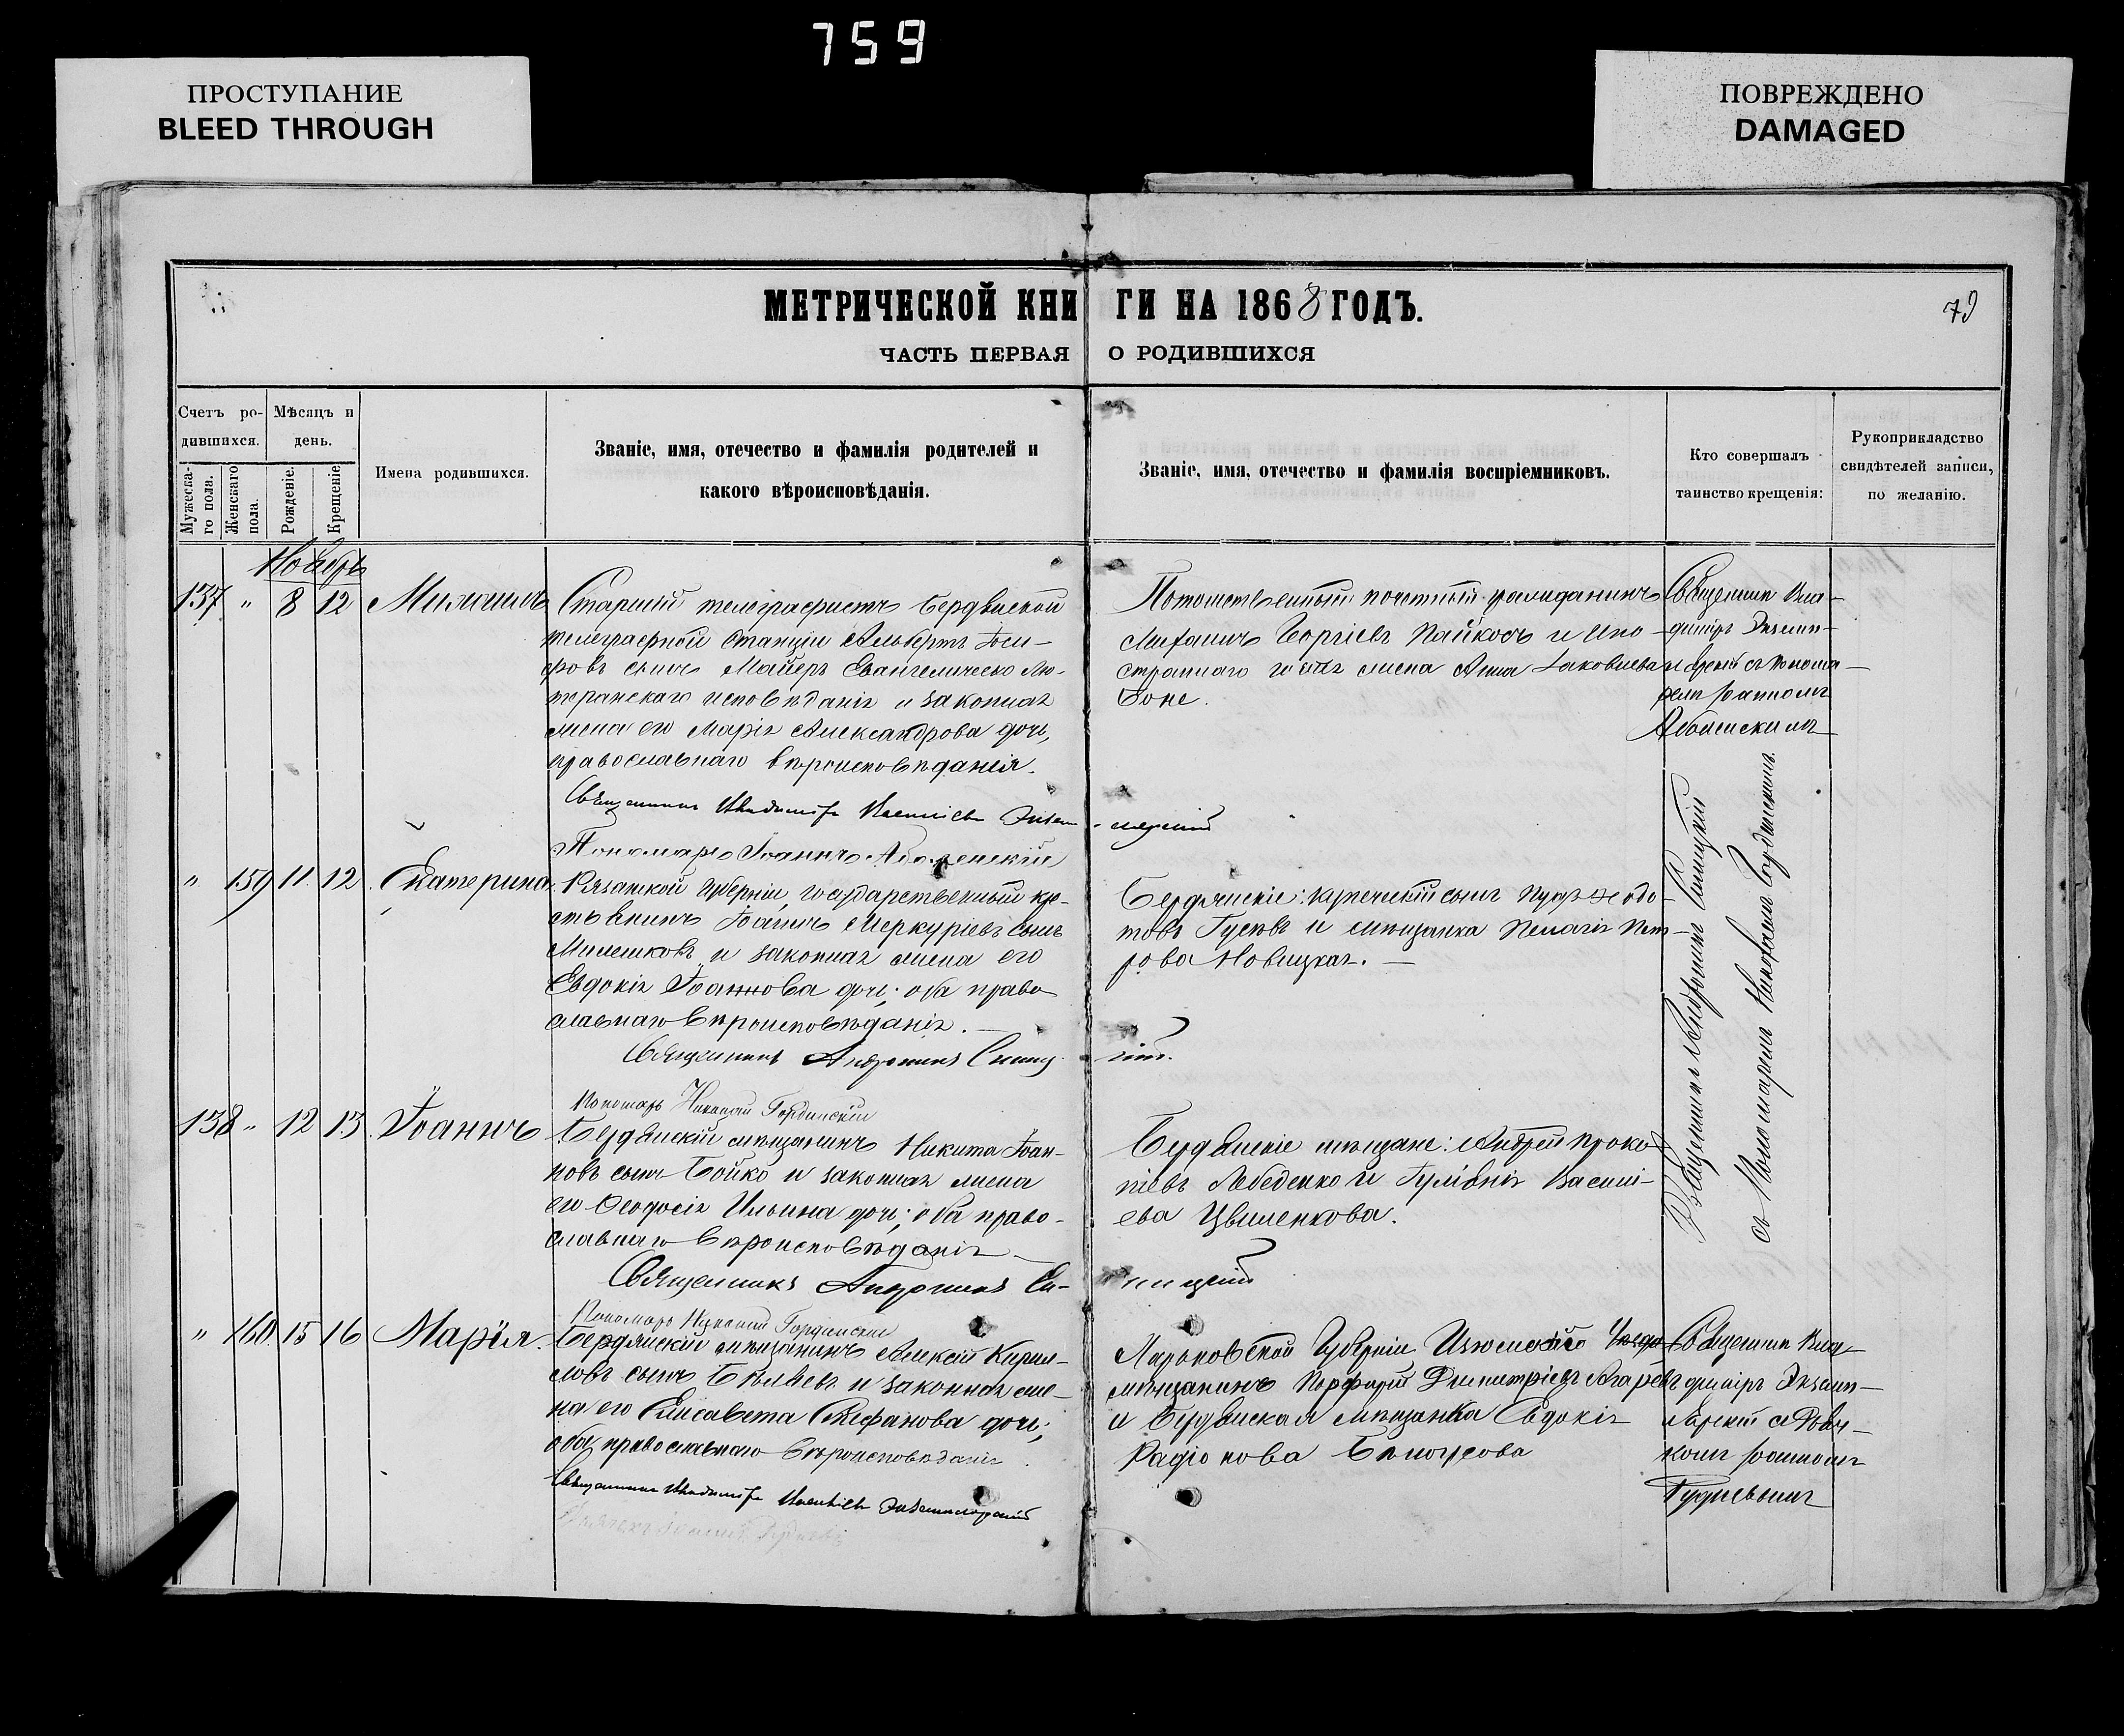 759
ПРОСТУПАНИЕ
BLEED THROUGH
ПОВРЕЖДЕНО
DAMAGED
МЕТРИЧЕСКОЙ КНИГИ НА 1868 ГОДЪ.
79
ЧАСТЬ ПЕРВАЯ О РОДИВШИХСЯ
Счетъ ро-
дившихся.
Мужеска-
го пола.
Женскаго
пола.
Мѣсяцъ и
день.
Рожденіе.
Крещеніе
Имена родившихся.
Званіе, имя, отечество и фамилія родителей и
какого вѣроисповѣданія.
Званіе, имя, отечество и фамилія воспріемниковъ.
Кто совершалъ
таинство крещенія:
Рукоприкладство
свидѣтелей записи,
по желанію.
Ноябрь
137 " 8 12
Старшій телеграфистъ Бердянской
телеграфной станціи Альбертъ Іоси-
фовъ сынъ Майеръ Евангелическо Лю-
теранскаго исповѣданія и законная
жена его Марія Александрова дочь,
православнаго вѣроисповѣданія.
Священникъ Владиміръ
Пономарь Іоаннъ
Потомственный почетный гражданинъ
Георгіевъ и ино-
страннаго гостя жена Анна Іаковлева
Боне.
Священник Вла-
диміръ Экземп-
лярскій съ Понома-
ремъ Іоанномъ
" 159 11 12 Екатерина
Рязанской Губерніи, государственный кре-
стьянинъ Іоаннъ Меркуріевъ сынъ
и законная жена его
Евдокія Іоаннова дочь; оба право-
славнаго вѣроисповѣданія.
Священникъ Андроникъ
Пономарь Гординскій
Бердянскіе: купеческій сынъ
Гусевъ и мѣщанка Пелагія Пет-
рова Новицкая.
Священникъ Андроникъ
съ Пономаремъ
138 " 12 13 Іоаннъ
Бердянскій мѣщанинъ Никита Іоан-
новъ сынъ Бойко и законная жена
его Ѳеодосія Ильина дочь; оба право-
славнаго вѣроисповѣданія
Священникъ Андроникъ
Пономарь Гординскій
Бердянскіе мѣщане: Андрей Проко-
піевъ Лебеденко и Василі-
ева Цвиленкова.
" 160 15 16 Марія.
Бердянскій мѣщанинъ Алексій Кирил-
ловъ сынъ Бѣляевъ и законная же-
на его Елисавета Стефанова дочь;
оба православнаго вѣроисповѣданія
Священникъ Владиміръ Экземплярскій
Харьковской Губерніи Изюмскаго Уезда
мѣщанинъ Порфирій Димитріевъ Агаревъ
и Бердянская мѣщанка Евдокія
Радіонова Бѣлоусова
Священник Вла-
диміръ Экземп-
лярскій съ Дьяч-
комъ Іоанномъ